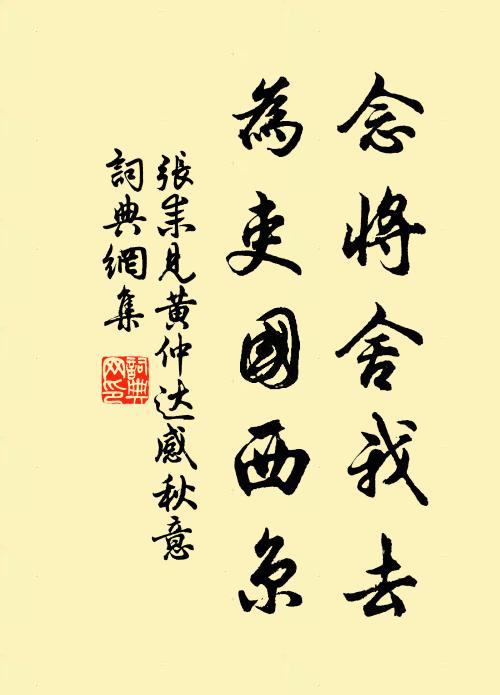 念將舍我去
為吏國西京
張耒見黄仲达感秋意
詞典網集
詞典
网印